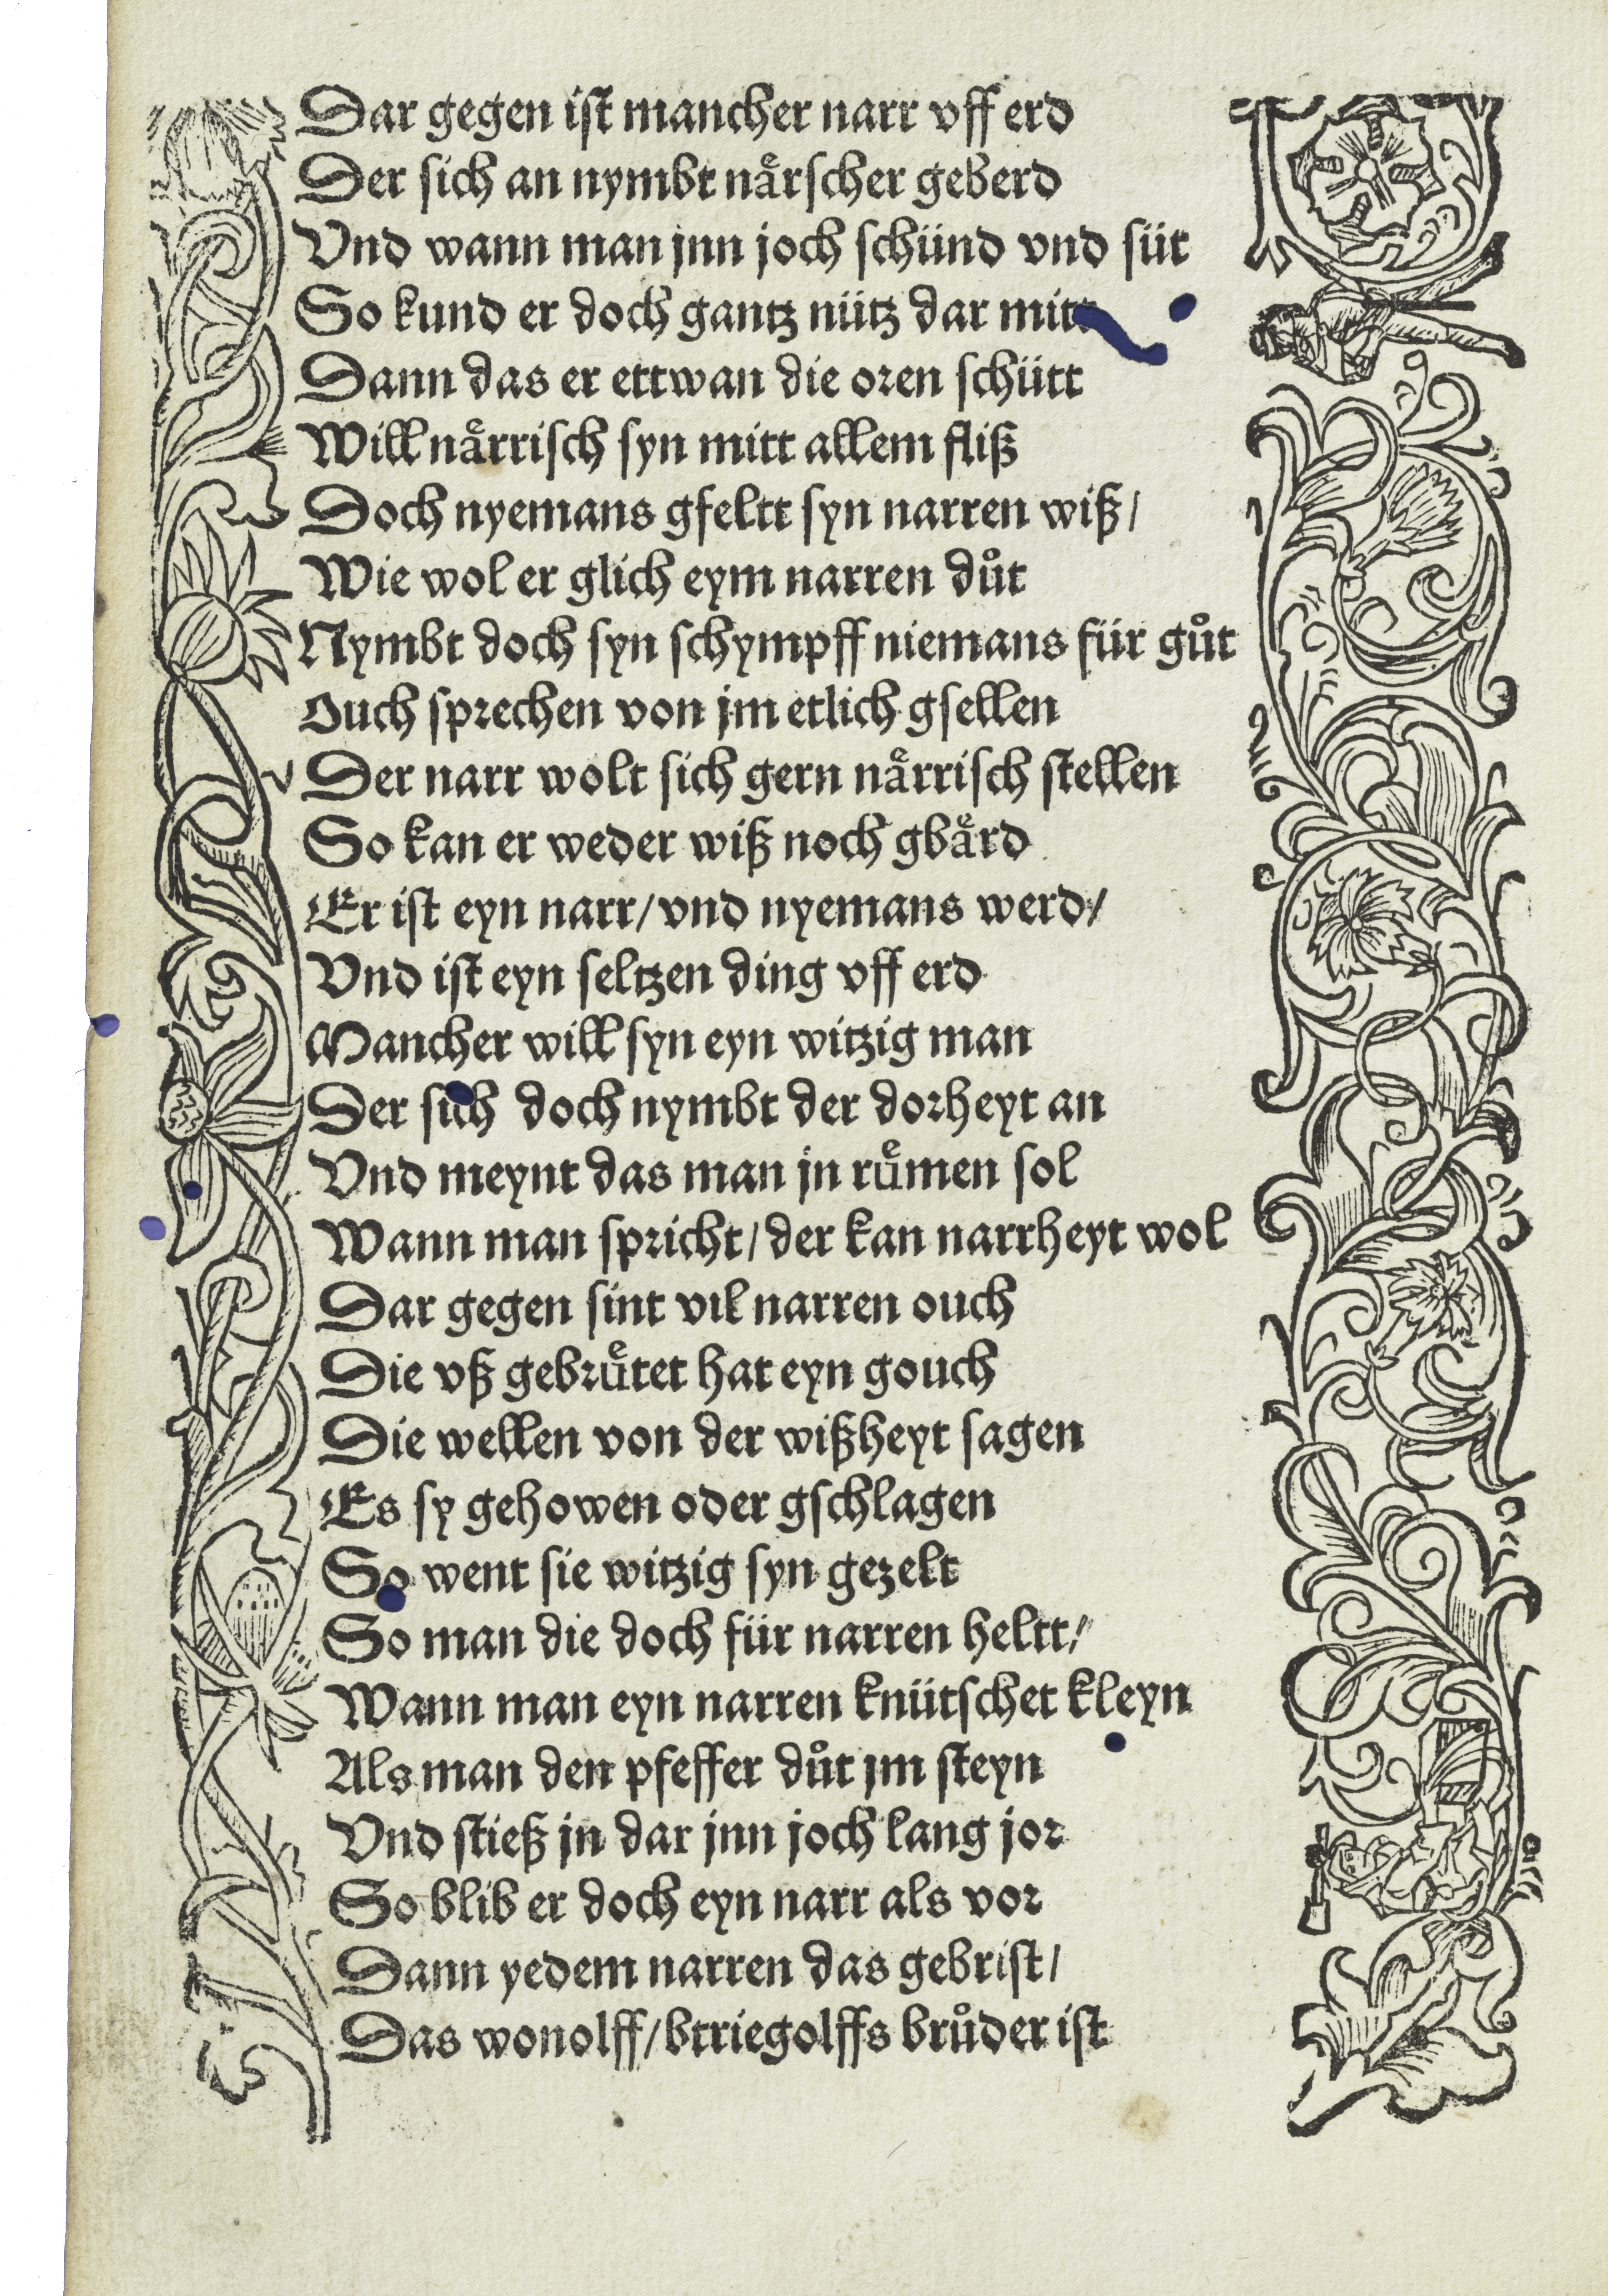 Dar gegen ist mancher narr vff erd
Der sich an nymbt naͤrscher geberd
Vnd wann man jnn joch schünd vnd süt
So kund er doch gantz nütz dar mitt
Dann das er ettwan die oren schütt
Will naͤrrisch syn mitt allem fliß
Doch nyemans gfeltt syn narren wiß/
Wie wol er glich eym narren duͦt
Nymbt doch syn schympff niemans für guͦt
Ouch sprechen von jm etlich gsellen
Der narr wolt sich gern naͤrrisch stellen
So kan er weder wiß noch gbaͤrd
Er ist eyn narr/ vnd nyemans werd/
Vnd ist eyn seltzen ding vff erd
Mancher will syn eyn witzig man
Der sich doch nymbt der dorheyt an
Vnd meynt das man jn ruͤmen sol
Wann man spricht/ der kan narrheyt wol
Dar gegen sint vil narren ouch
Die vß gebruͤtet hat eyn gouch
Die wellen von der wißheyt sagen
Es sy gehowen oder gschlagen
So went sie witzig syn gezelt
So man die doch für narren heltt/
Wann man eyn narren knütschet kleyn
Als man den pfeffer duͦt jm steyn
Vnd stieß jn dar jnn joch lang jor
So blib er doch eyn narr als vor
Dann yedem narren das gebrist/
Das wonolff/ btriegolffs bruͦder ist